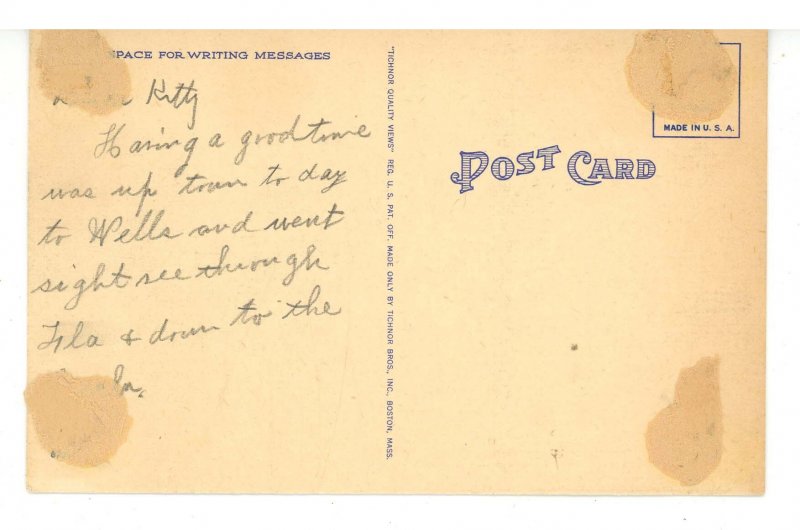 PACE FOR WRITING MESSAGES
Kitty
Having a good time
was up town to day
to Wells and went
sight see through
Fla & down to the
"TICHNOR QUALITY VIEWS" REG. U. S. PAT. OFF. MADE ONLY BY TICHNOR BROS., INC., BOSTON, MASS.
POST CARD
MADE IN U. S. A.